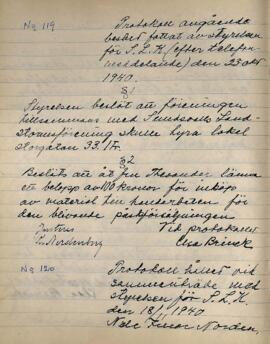 No 119 Protokoll angående
beslut fattat av styrelsen
för S.L.K. (efter telefon-
meddelande) den 23 okt
1940.
§1
Styrelsen beslöt att föreningen
tillsammans med Sundsvalls Land-
stormsförening skulle hyra lokal
Storgatan 33. 1 tr.
§2
Beslöts att åt fru Thesander lämna
ett belopp av 100 kronor för inköp
av material
den blivande
Justeras Vid protokollet
Elsa Brinck
No 120 Protokoll hållet vid
sammanträde med
styrelsen för S.L.K.
den 18/ 1940
Närv. Fruar Nordén,